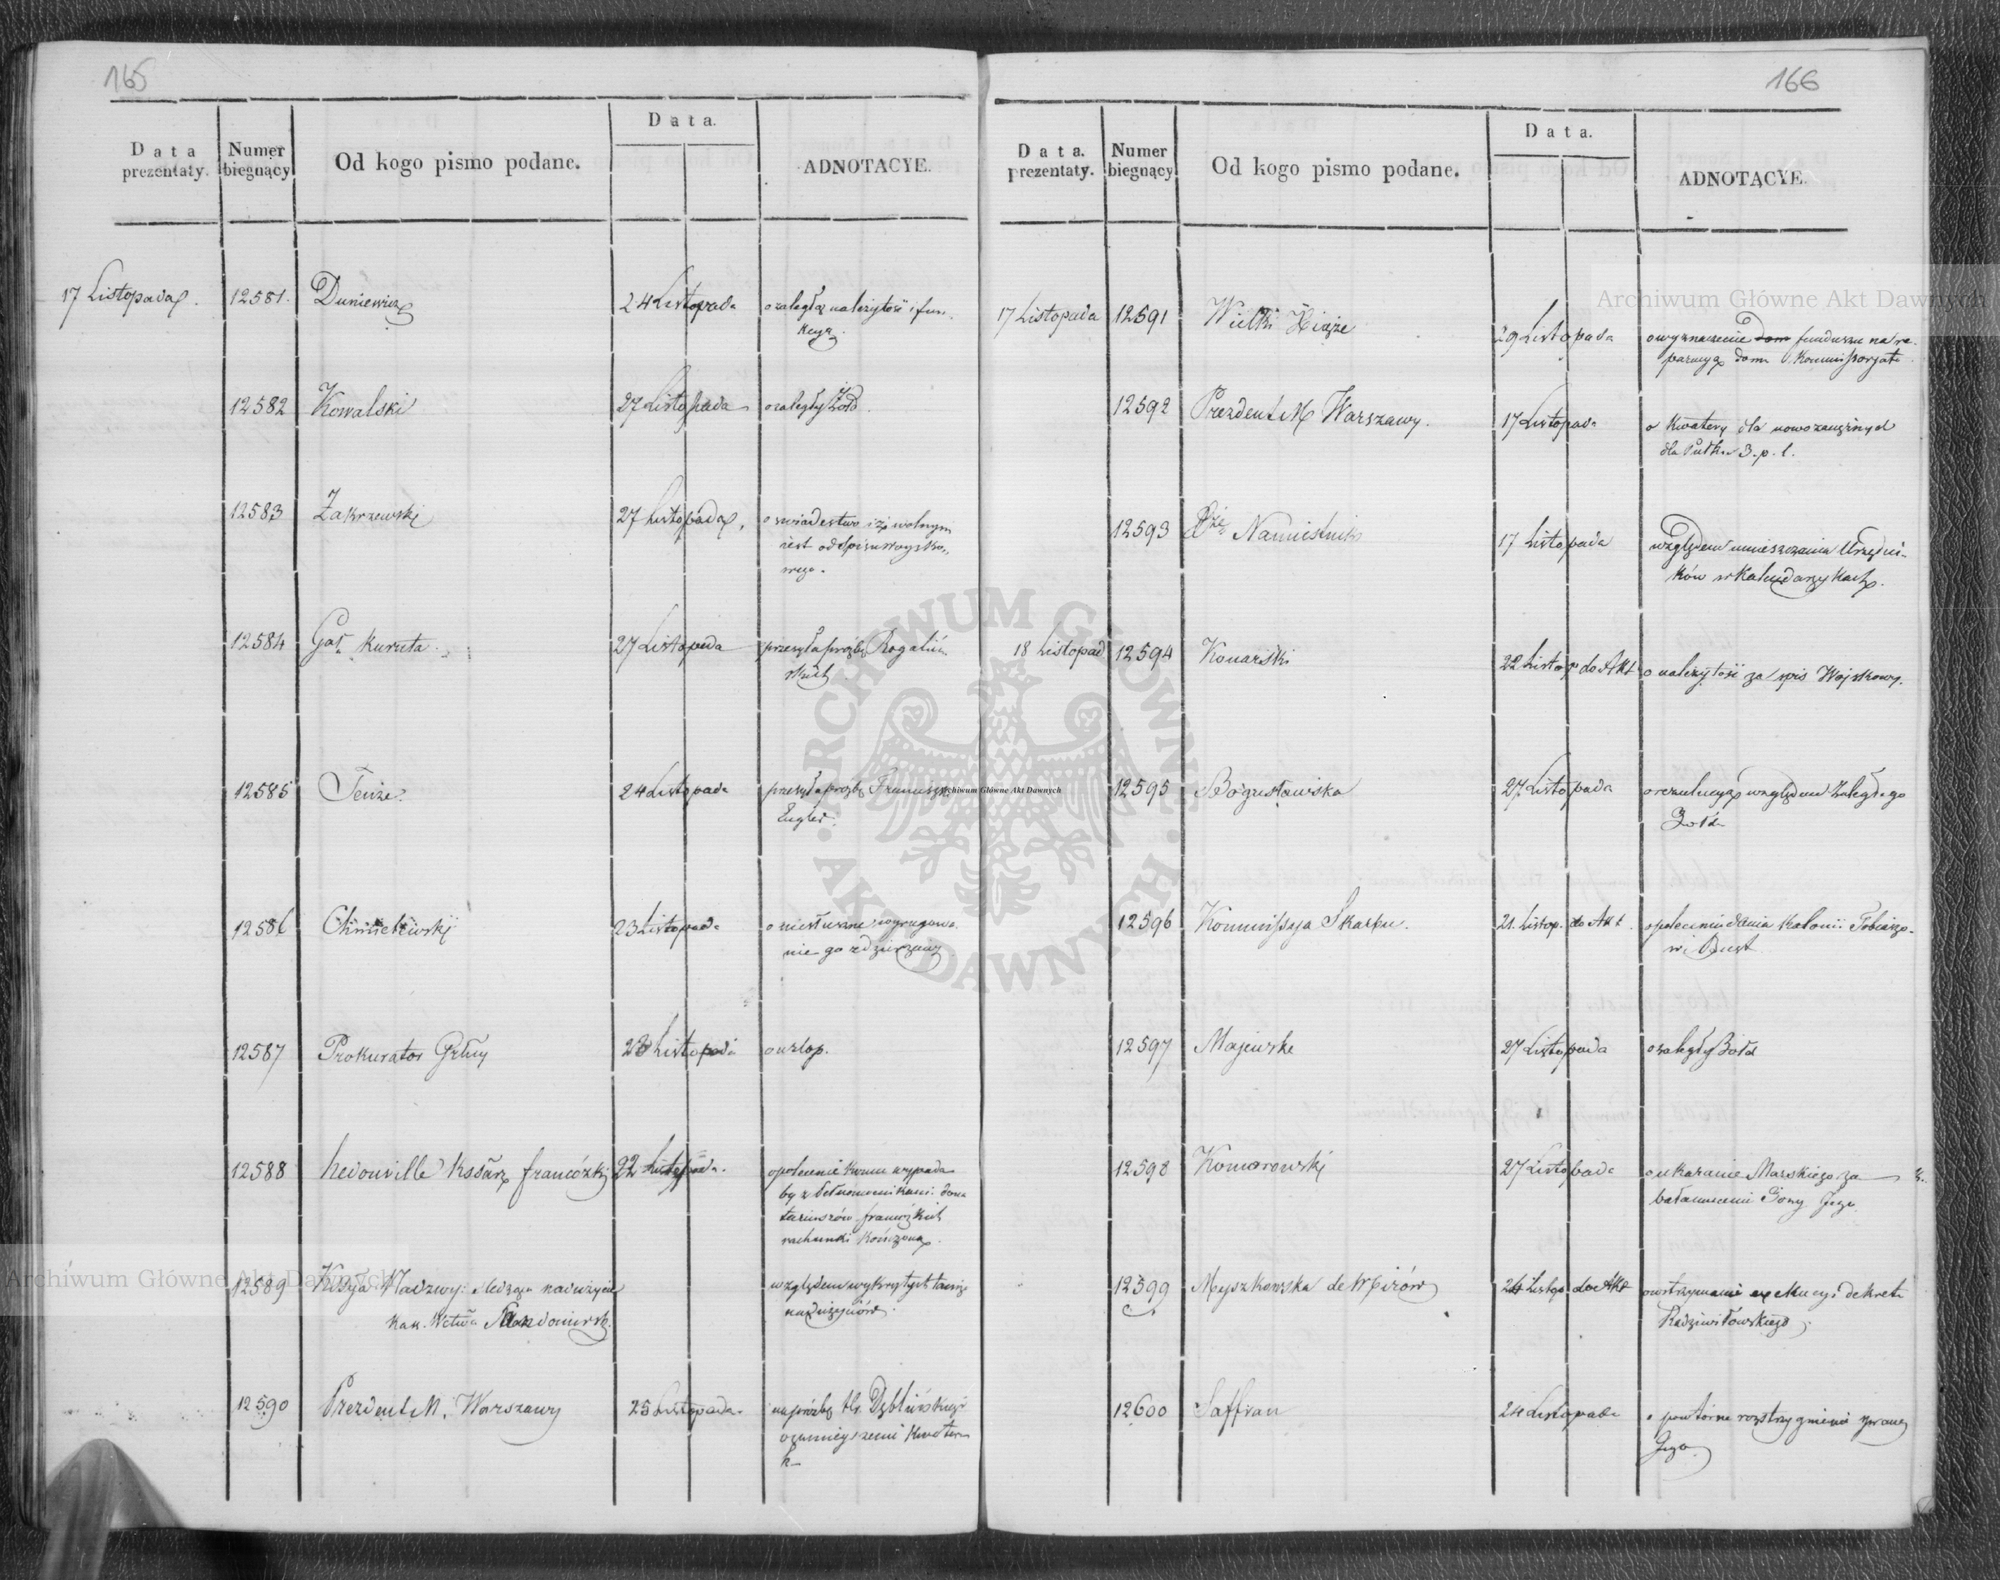 165
Data prezentaty.
Numer biegnący
Od kogo pismo podane.
Data.
ADNOTACYE.
17 Listopada
12581.
Duniewicz
24 Listopada
o zaległą należytość i fun-
kcyą.
12582
Kowalski
27 Listopada
o zaległy Żołd.
12583
Zakrzewski
27 Listopada,
o swiadestwo iż wolnym
iest od Spisu Woysko-
wego.
12584
Gał Kuruta
27 Listopada
przesyła prozbę Rogaliń-
skich
12585
Tenże
24 Listopada
przesyła prozbę Franciszk
Engler.
12586
Chmielewski
23 Listopada
o niesłuszne wyrugowa
nie go z dzierzawy
12587
Prokurator Grlny
28 Listopada
o urlop.
12588
hedouville Kssarz francózki
22 Listopada.
o polecenie komu wypada
by z Pełnomocnikami dona
tariuszów francuzkich
rachunki kończono.
12589
Kssya Nadzwy: śledząca nadużycia
kass. Wctwa Sandomirsk.
względem wykrytych tamże
nadużyciów.
12590
Prezdent M. Warszawy
25 Listopada.
na prózbę Dęblińskiego
o zamieyszenie kwateru
166
Data. prezentaty.
Numer biegnący
Od kogo pismo podane.
Data.
ADNOTACYE.
17 Listopada
12591
Wielki Xiąże
29 Listopada
o wyznaczenie dom funduszu na re-
paracyą domu Kommissoryatu
12592
Prezdent M Warszawy.
17 Listopada
o kwatery dla nowozaciężnych
dla Pułku 3. p. l.
12593
Xże Namiestnik
17 Listopada
względem umieszczania Urzędni-
ków w Kalendarzykach.
18 Listopad
12594
Konarski
22 Listop do Akt
o należytość za spis Woyskowy.
12595
Bogusławska
27 Listopada
o rezolucyą względem Zaległego
Żołdu
12596
Kommissya Skarbu.
21. Listop. do Akt.
o polecenie dania kolonii Tobiaszo-
wi Dust
12597
Majewske
27 Listopada
o zaległy Żołd
12598
Komorowski
27 Listopada
o ukaranie Marskiego za
bałamucenie Żony Jego
12599
Myszkowska de Mirów
24 Listop do Akt
o wstrzymanie exekucyi dekretu
Radziwiłowskiego
12600
Saffran
24 Listopada
o powtórne rozstrzygnienie sprawy
Jego
Archiwum Główne Akt Dawnych
Archiwum Główne Akt Dawnych
Archiwum Główne Akt Dawnych
ARCHIWUM GŁÓWNE AKT DAWNYCH